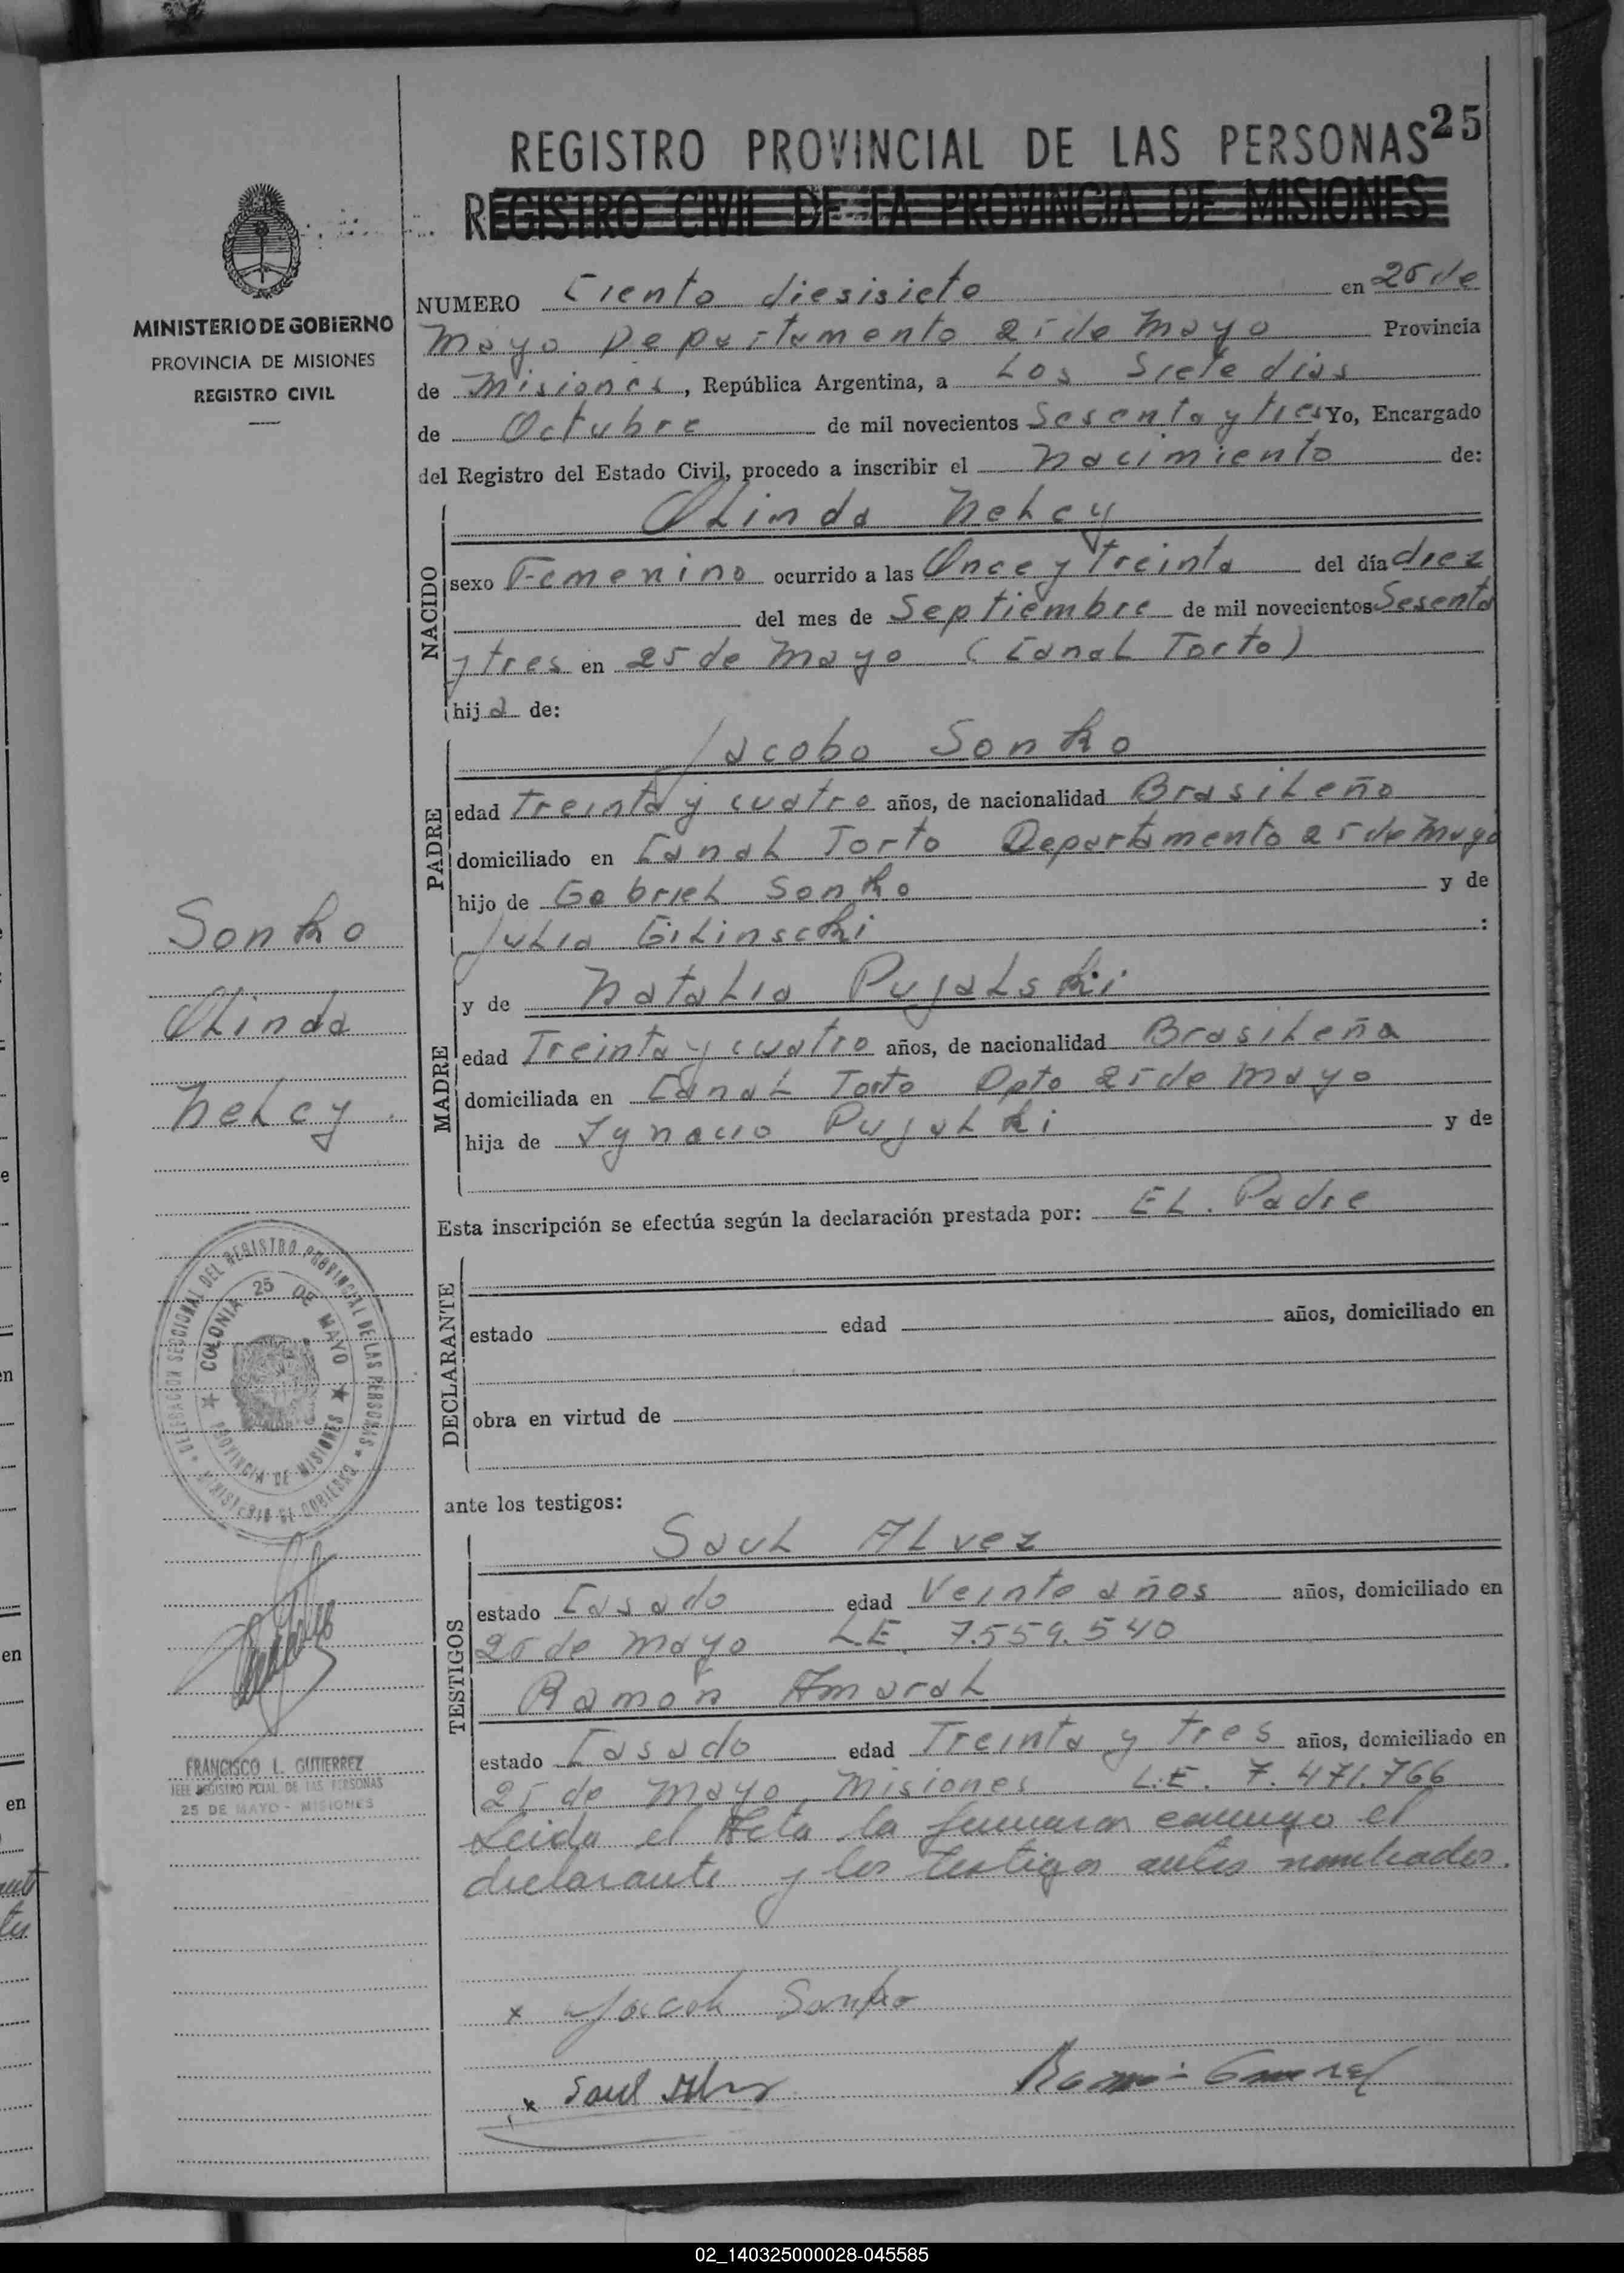 25
REGISTRO PROVINCIAL DE LAS PERSONAS
REGISTRO CIVIL DE LA PROVINCIA DE MISIONES
MINISTERIO DE GOBIERNO
PROVINCIA DE MISIONES
REGISTRO CIVIL
NUMERO Ciento diesisiete en 25 de
Mayo Departamento 25 de Mayo Provincia
de Misiones, República Argentina, a Los Siete dias
de Octubre de mil novecientos Sesenta y tres Yo, Encargado
del Registro del Estado Civil, procedo a inscribir el Nacimiento de:
NACIDO
OLinda NeLcy
sexo Femenino ocurrido a las Once y Treinta del día diez
del mes de Septiembre de mil novecientos Sesenta
y tres en 25 de Mayo (CanaL Torto)
hija de:
PADRE
Jacobo Sonko
edad Treinta y cuatro años, de nacionalidad BrasiLeño
domiciliado en CanaL Torto Departamento 25 de Mayo
hijo de GabrieL Sonko y de
JuLia GiLinscki :
MADRE
y de NataLia PujaLski
edad Treinta y cuatro años, de nacionalidad BrasiLeña
domiciliada en CanaL Torto Dpto 25 de Mayo
hija de Ignacio PujaLki y de
Esta inscripción se efectúa según la declaración prestada por: EL. Padre
DECLARANTE
estado edad años, domiciliado en
obra en virtud de
ante los testigos:
TESTIGOS
SauL ALvez
estado Casado edad Veinte años años, domiciliado en
25 de Mayo L.E. 7.559.540
Ramón AmaraL
estado Casado edad Treinta y tres años, domiciliado en
25 de Mayo, Misiones L.E. 7.471.766
Leida el Acta la firmaron conmigo el
declarante y los testigos antes nombrados.
x Jacob Sonko
x Saul Alvez
Sonko
OLinda
NeLcy.
DELEGACION SECCIONAL DEL REGISTRO PROVINCIAL DE LAS PERSONAS
COLONIA 25 DE MAYO
PROVINCIA DE MISIONES
FRANCISCO L. GUTIERREZ
JEFE REGISTRO PCIAL. DE LAS PERSONAS
25 DE MAYO - MISIONES
02_140325000028-045585